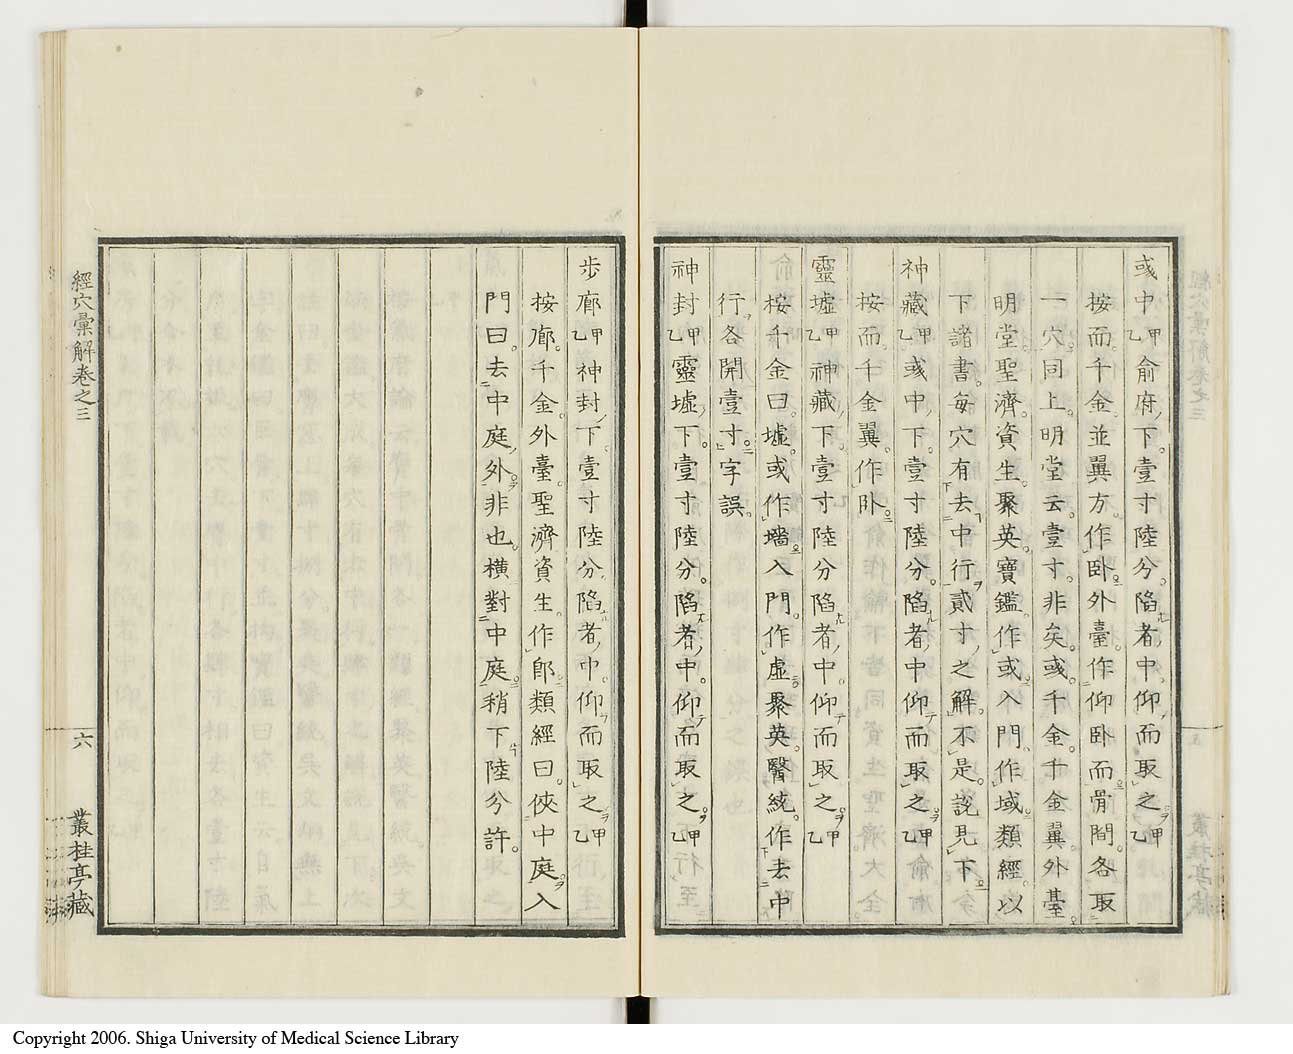 彧中甲乙俞府下壹寸陸分陷者中仰而取之甲乙
按而千金並翼方作臥外臺作仰臥而骨間各取
一穴同上明堂去壹寸非矣彧千金千金翼外臺
明堂聖濟資生聚英寶鑑作或入門作域類經以
下諸書每穴有去中行貳寸之解不是說見下
神藏甲乙彧中下壹寸陸分陷者中仰而取之甲乙
按而千金翼作卧
靈墟甲乙神藏下壹寸陸分陷者中仰而取之甲乙
按千金曰墟或作墻入門作虛聚英醫統作去中
行各開壹寸字誤
神封甲乙靈墟下壹寸陸分陷者中仰而取之甲乙
步廊甲乙神封下壹寸陸分陷者中仰而取之甲乙
按廊千金外臺聖濟資生作郎類經曰俠中庭入
門曰去中庭外非也橫對中庭稍下陸分許
經穴彙解卷之三
六
叢桂亭藏
Copyright 2006. Shiga University of Medical Science Library